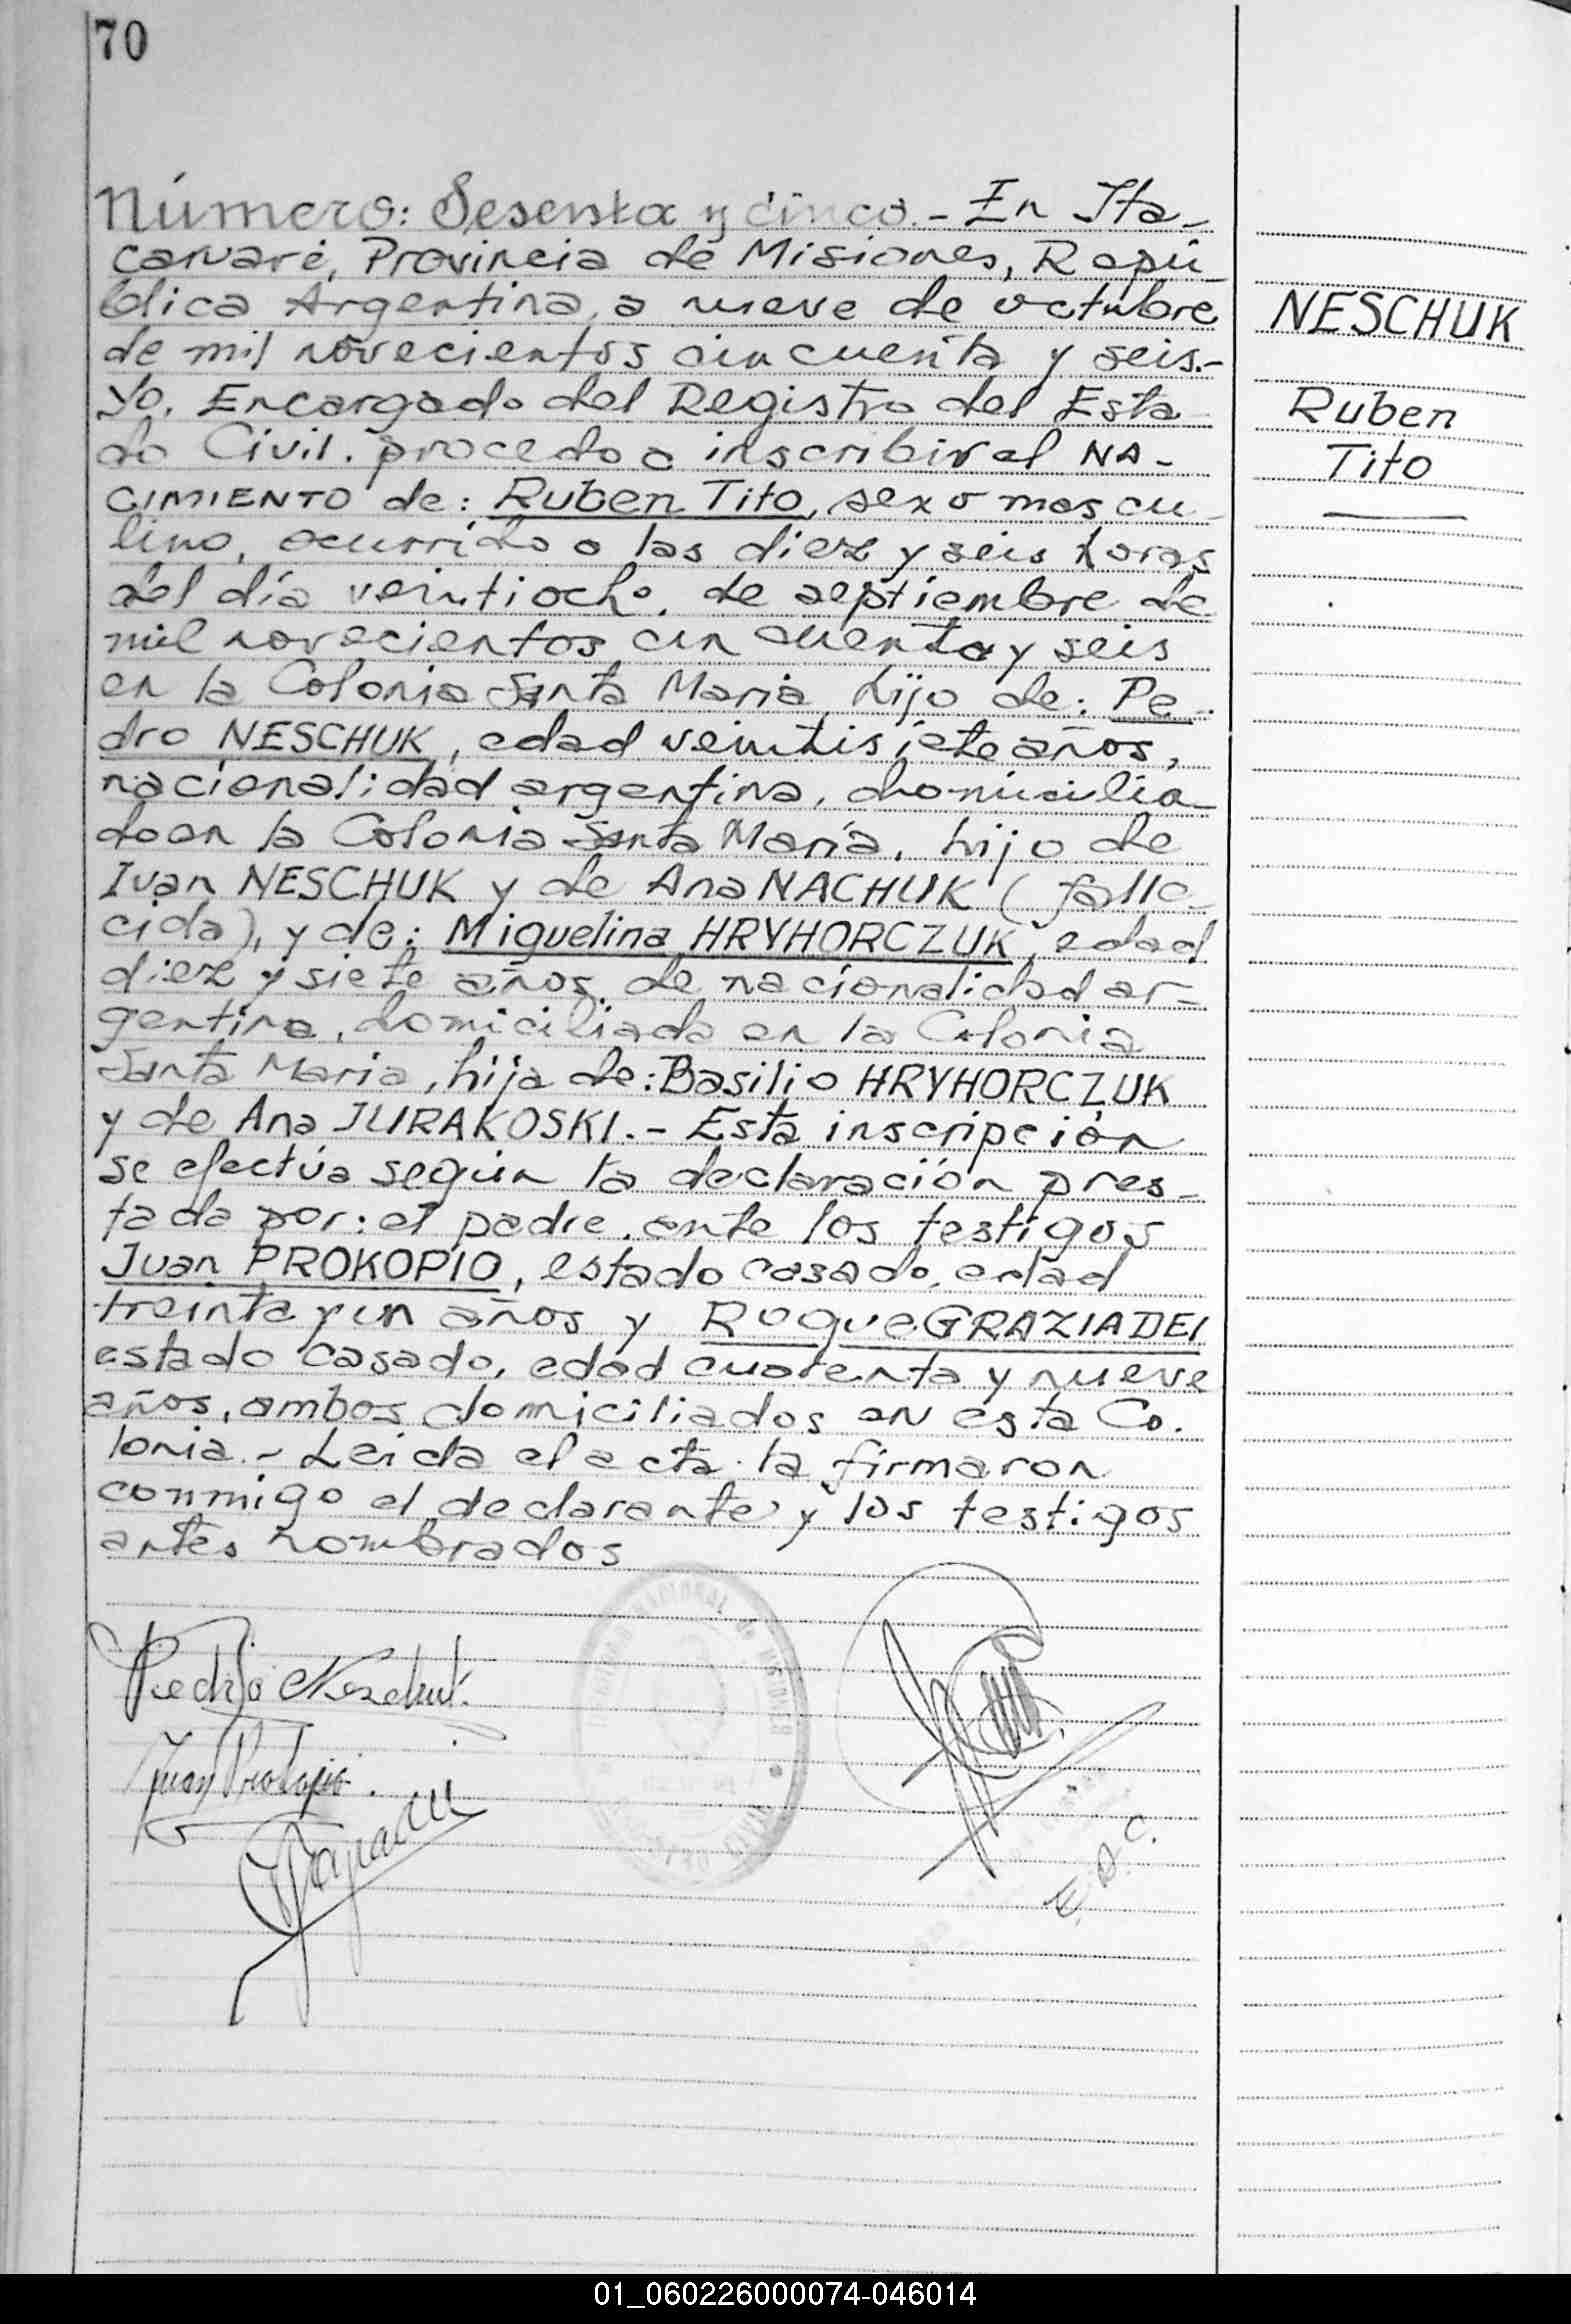 70
Número: Sesenta y cinco.- En Ita-
caruaré, Provincia de Misiones, Repú-
blica Argentina, a nueve de octubre
de mil novecientos cincuenta y seis.-
Yo, Encargado del Registro del Esta-
do Civil. procedo a inscribir el NA-
CIMIENTO de: Ruben Tito, sexo mascu-
lino, ocurrido a las diez y seis horas
del día veintiocho, de septiembre de
mil novecientos cincuenta y seis
en la Colonia Santa Maria, hijo de: Pe-
dro NESCHUK, edad veintisiete años,
nacionalidad argentina, domicilia-
do en la Colonia Santa María, hijo de
Ivan NESCHUK y de Ana NACHUK (falle-
cida), y de: Miguelina HRYHORCZUK, edad
diez y siete años, de nacionalidad ar-
gentina, domiciliada en la Colonia
Santa Maria, hija de: Basilio HRYHORCZUK
y de Ana JURAKOSKI.- Esta inscripción
se efectúa según la declaración pres-
tada por: el padre, ante los testigos
Juan PROKOPIO, estado casado, edad
treinta y un años y Roque GRAZIADEI
estado casado, edad cuarenta y nueve
años, ambos domiciliados en esta Co-
lonia.- Leida el acta la firmaron
conmigo el declarante y los testigos
antes nombrados
NESCHUK
Ruben
Tito
Pedro Neschuk
Juan Prokopio.
E. D. C.
01_060226000074-046014